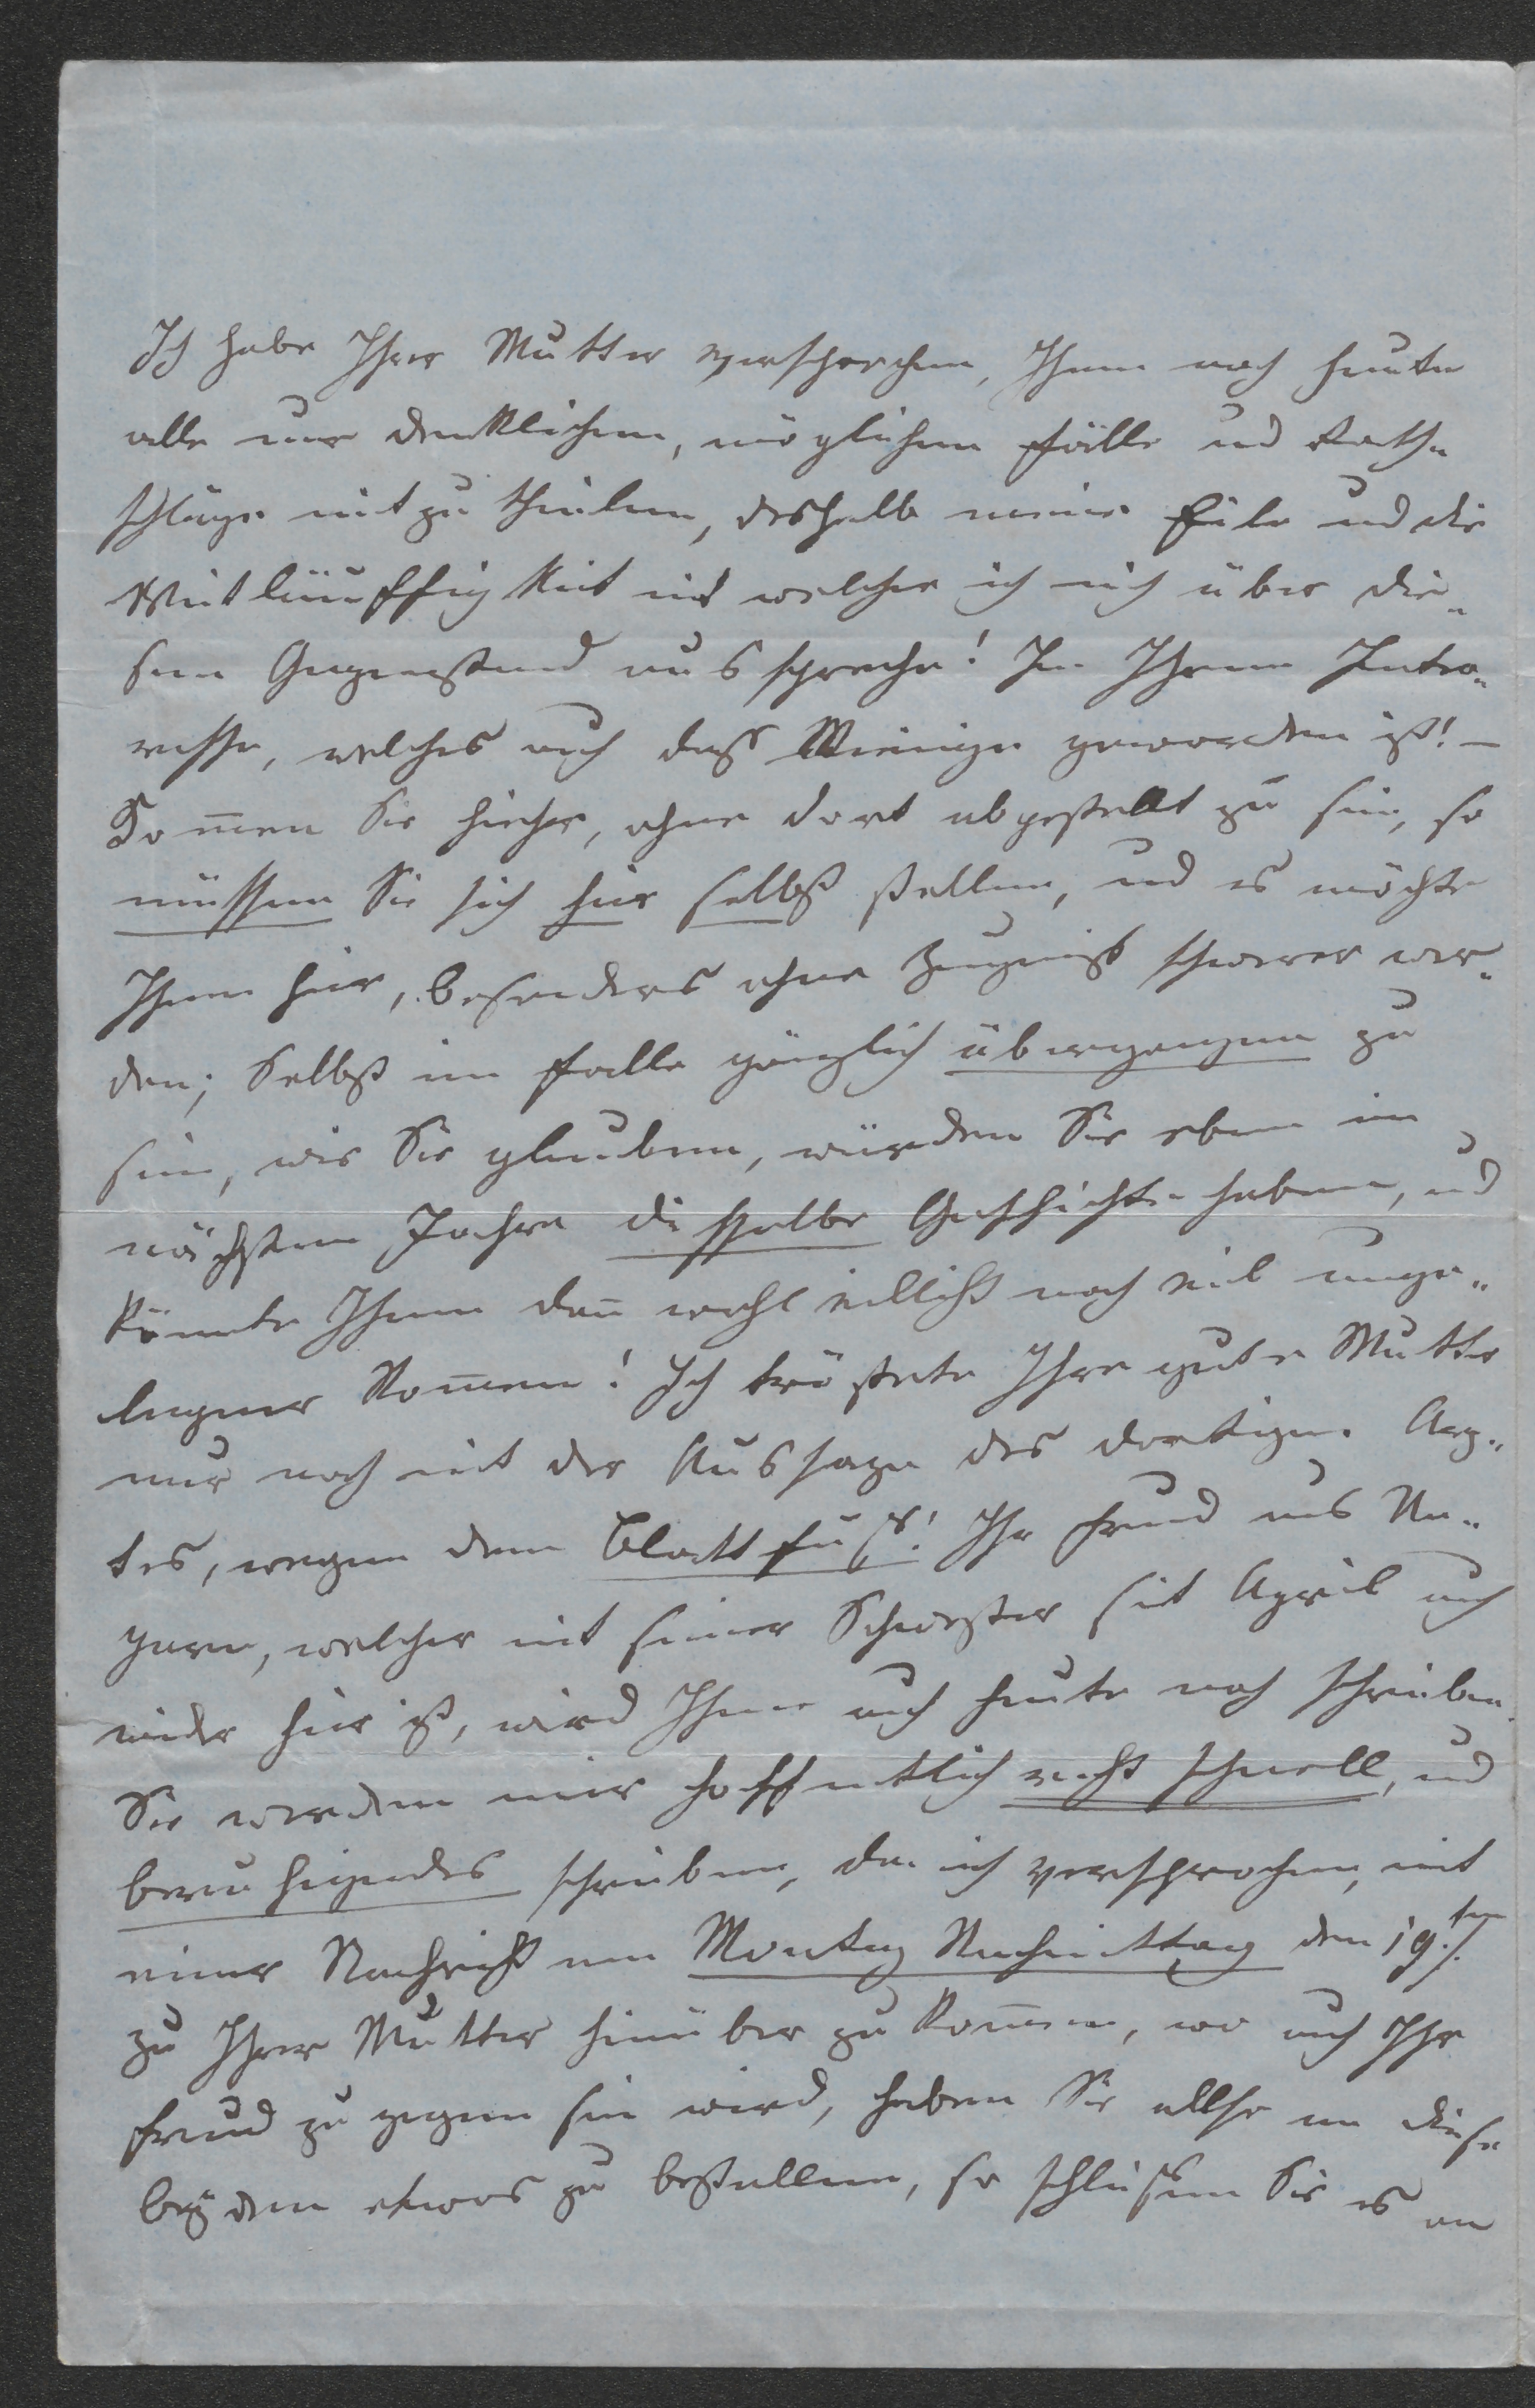 Ich habe Ihrer Mutter versprochen, Ihnen noch heute
alle nur denklichen, möglichen Fälle und Rath„
schläge mit zu theilen, deshalb meine Eile und die
Weitläuffigkeit mit welcher ich mich über die„
sen Gegenstand ausspreche! In Ihrem Inte„
resse, welches auch dass Meinige geworden ist! —
Kom̅en Sie hieher, ohne dort abgestellt zu sein, so
müssen Sie sich hier selbst stellen, und es möchte
Ihnen hier, besonders ohne Zeugniß schwerer wer„
den; Selbst im Falle gänzlich übergangen zu
sein, wie Sie glauben, würden Sie eben im
nächsten Jahre diesselbe Geschichte haben, und
könnte Ihnen dan̅ wohl villeicht noch viel unge„
legener kom̅en! Ich tröstete Ihre gute Mutter
nur noch mit der Aussage des dortigen Arz„
tes, wegen dem Blattfuß! Ihr Freund aus Un„
garn, welcher mit seiner Schwester seit April auch
wieder hier ist, wird Ihnen auch heute noch schreiben.
Sie werden mir hoffentlich recht schnell, und
beruhigendes schreiben, da ich versprochen, mit
einer Nachricht am Montag Nachmittag den 19ten
zu Ihrer Mutter hinüber zu kom̅en, wo auch Ihr
Freund zu gegen sein wird, haben Sie allso an diese
beÿden etwas zu bestellen, so schließen Sie es an